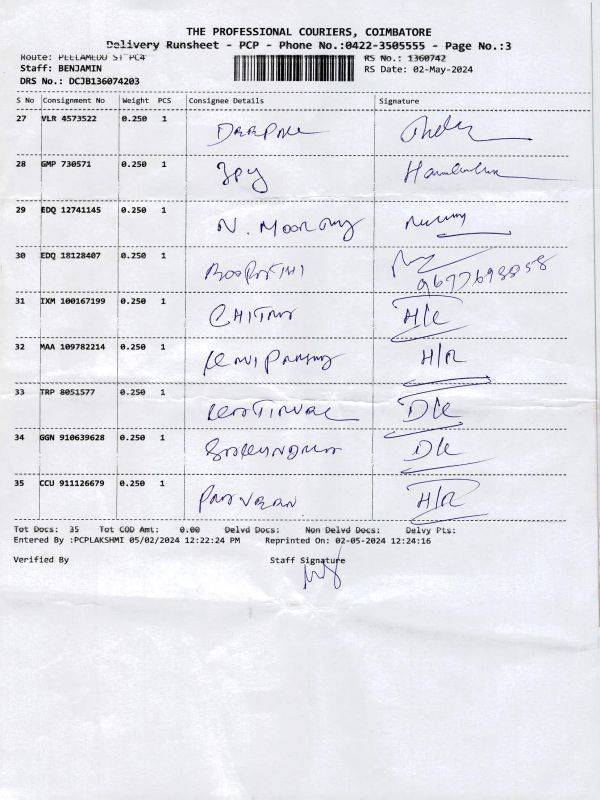 THE PROFESSIONAL COURIERS, COIMBATORE
Delivery Runsheet - PCP - Phone No.:0422-3505555 - Page No.:3
Route: PEELAMEDU ST PC4 RS No.: 1360742
Staff: BENJAMIN RS Date: 02-May-2024
DRS No.: DCJB136074203
S No Consignment No Weight PCS Consignee Details Signature
27 VLR 4573522 0.250 1
28 GMP 730571 0.250 1 Joy
29 EDQ 12741145 0.250 1 N. Moorthy
30 EDQ 18128407 0.250 1 BOOPATHI
31 IXM 100167199 0.250 1 CHITRA
32 MAA 109782214 0.250 1 H/R
33 TRP 8051577 0.250 1
34 GGN 910639628 0.250 1
35 CCU 911126679 0.250 1 PRAVEEN H/R
Tot Docs: 35 Tot COD Amt: 0.00 Delvd Docs: Non Delvd Docs: Delvy Pts:
Entered By :PCPLAKSHMI 05/02/2024 12:22:24 PM Reprinted On: 02-05-2024 12:24:16
Verified By Staff Signature